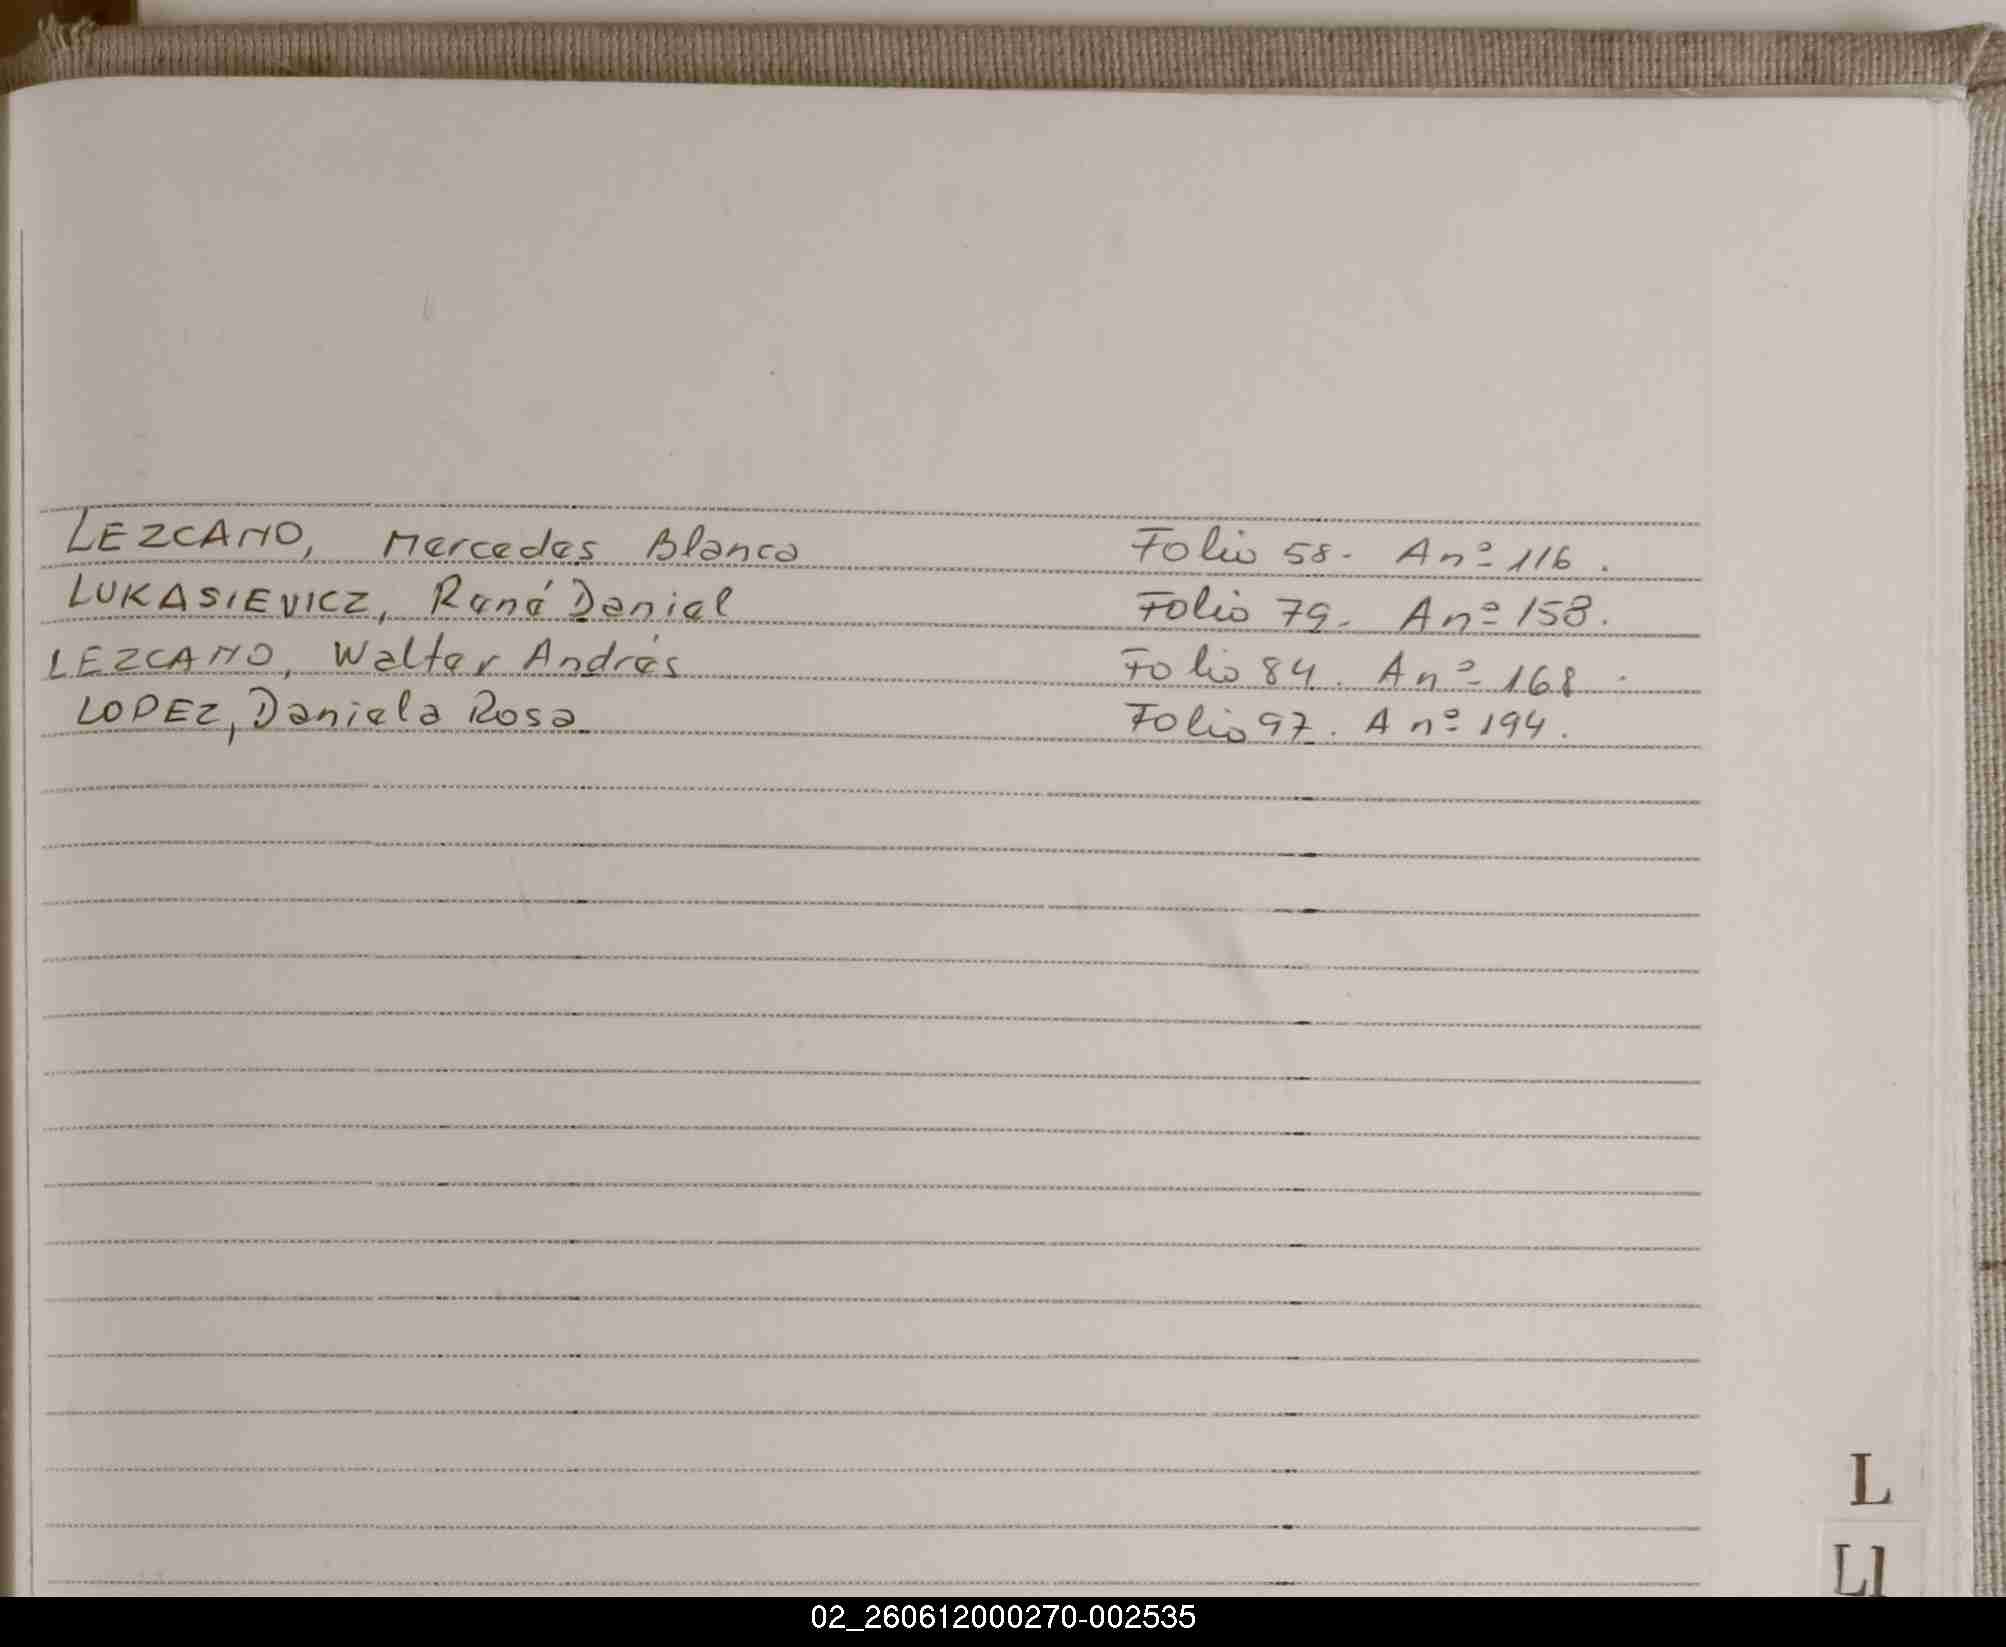 LEZCANO, Mercedes Blanca Folio 58- A nº 116.
LUKASIEVICZ, René Daniel Folio 79- A nº 158.
LEZCANO, Walter Andrés Folio 84. A nº 168.
LOPEZ, Daniela Rosa Folio 97. A nº 194.
L
Ll
02_260612000270-002535